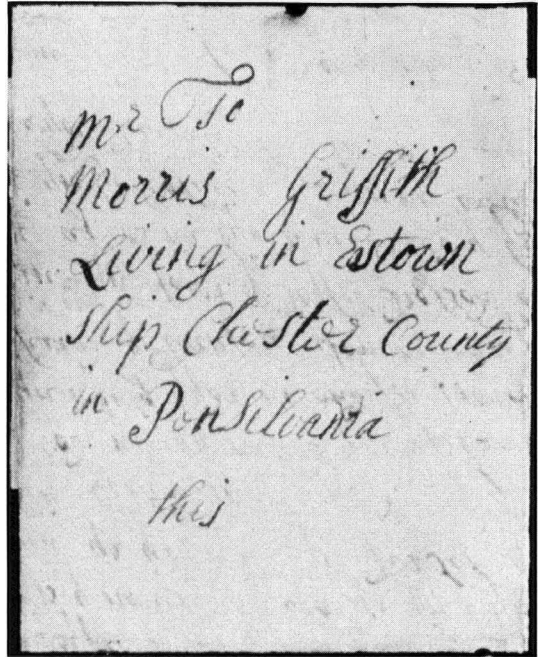 To
Mr
Morris Griffith
Living in Estown
ship Chester County
in Ponsilvania
this